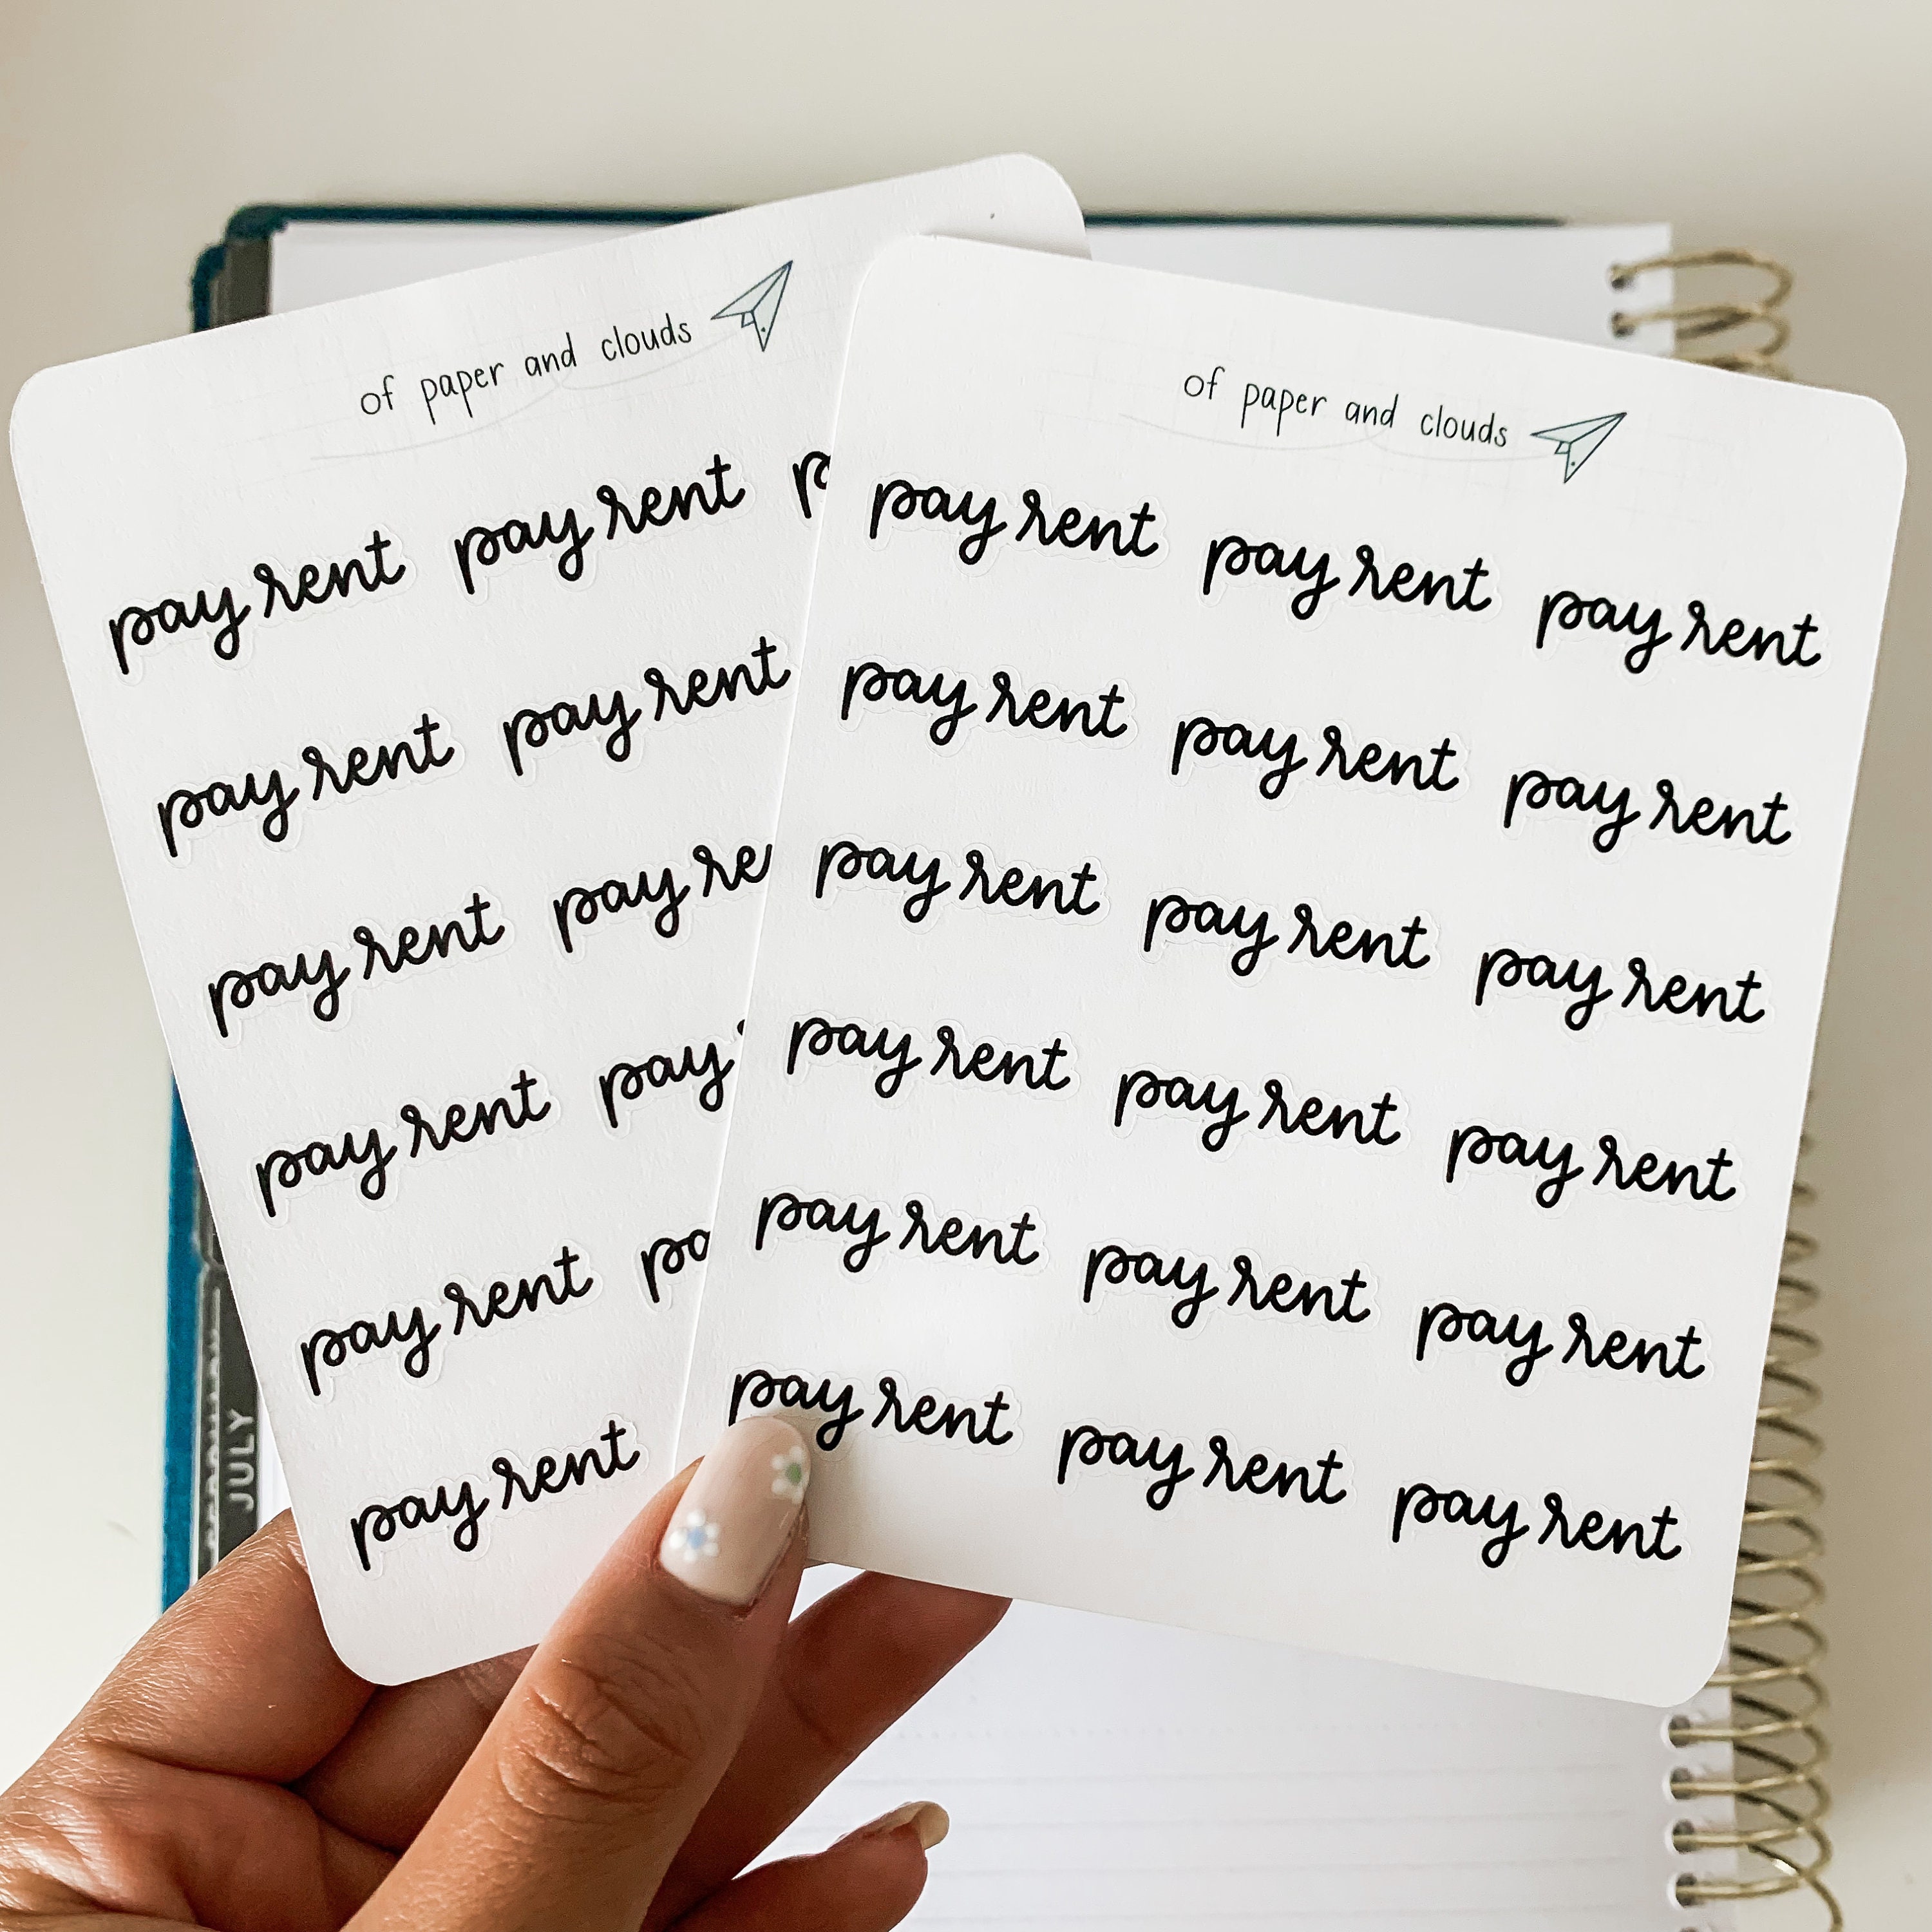 of paper and clouds
pay rent pay rent p
pay rent pay rent
pay rent pay re
pay rent pay
pay rent pa
pay rent
of paper and clouds
pay rent pay rent pay rent
pay rent pay rent pay rent
pay rent pay rent pay rent
pay rent pay rent pay rent
pay rent pay rent pay rent
pay rent pay rent pay rent
JULY